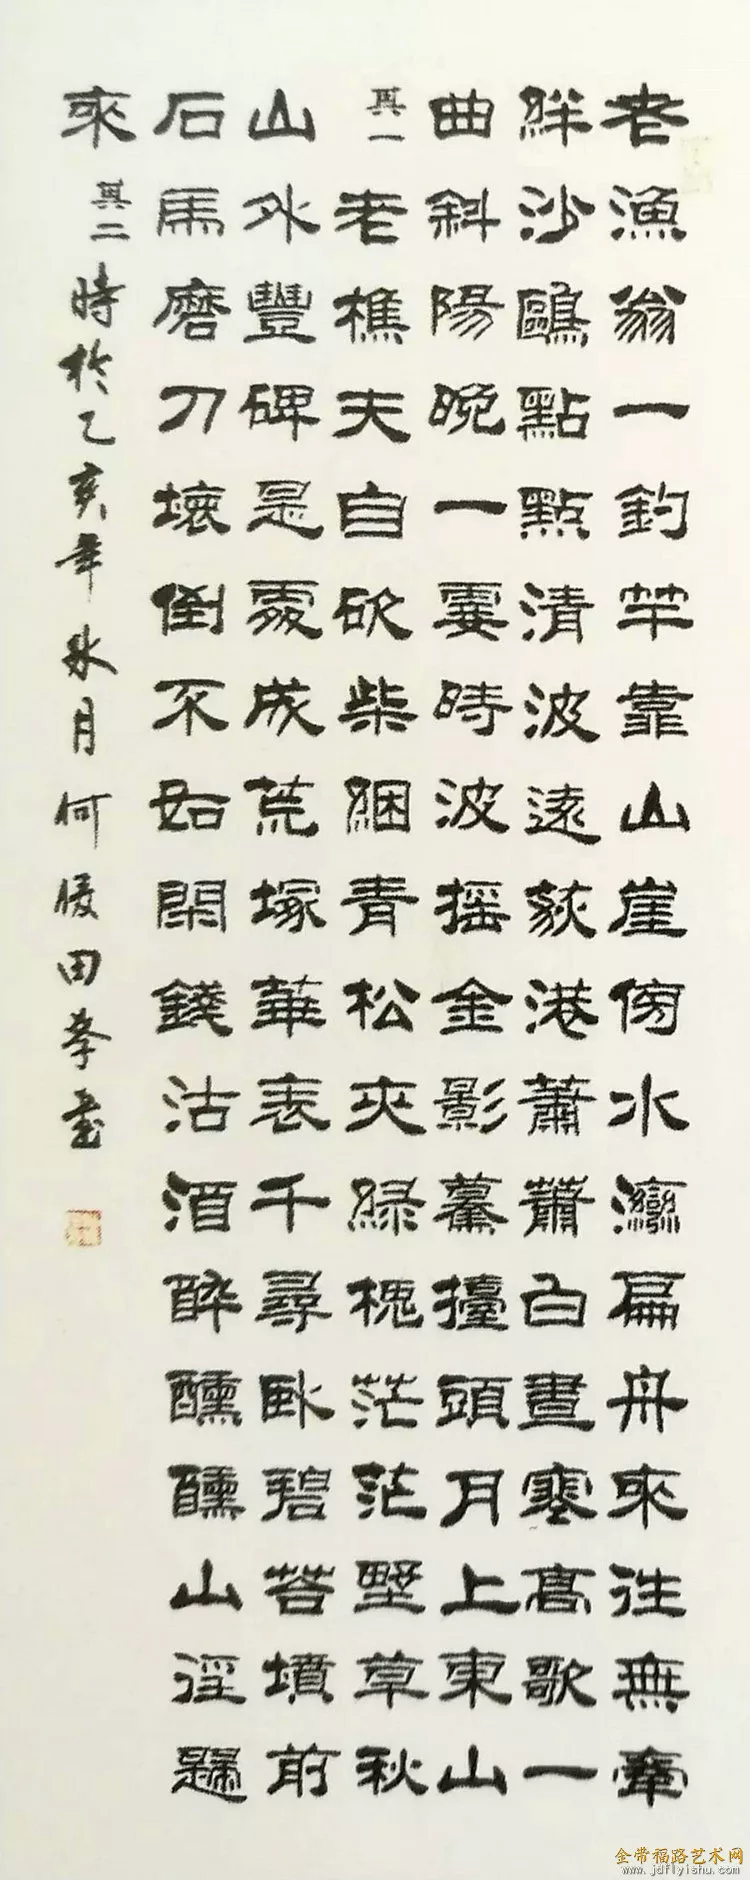 老漁翁一釣竿靠山崖傍水灣扁舟來往無牽
絆沙鷗點點清波遠荻港蕭蕭白晝寒高歌一
曲斜陽晚一霎時波搖金影驀擡頭月上東山
其一 老樵夫自砍柴綑青松夾綠槐茫茫野草秋
山外豐碑是處成荒塚華表千尋臥碧苔墳前
石馬磨刀壞倒不如閑錢沽酒醉醺醺山徑歸
來 其二 時於乙亥年冰月何田書
金带福路艺术网
www.jdflyishu.com